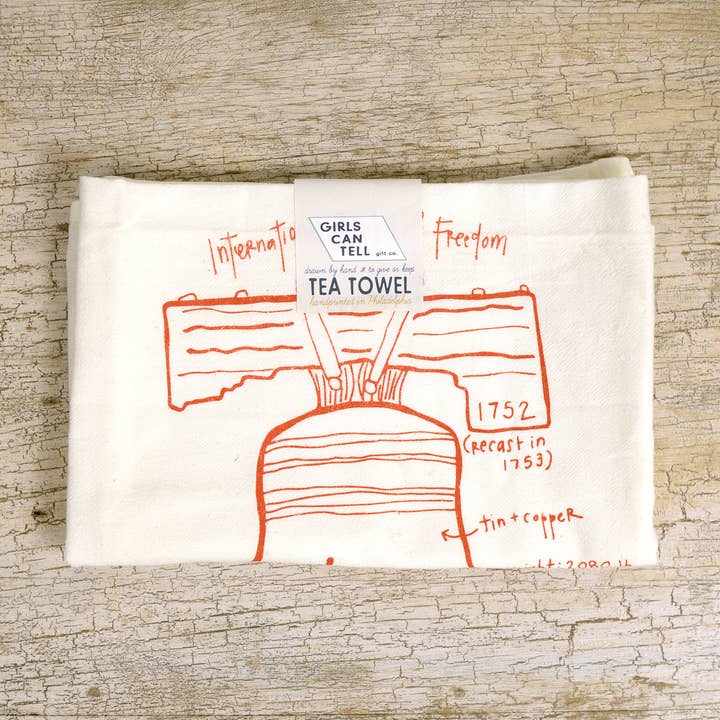 Internatio Freedom
GIRLS
CAN
TELL gift co.
drawn by hand to give or keep
TEA TOWEL
handprinted in Philadelphia
1752
(Recast in
1753)
tin + copper
2080 lb